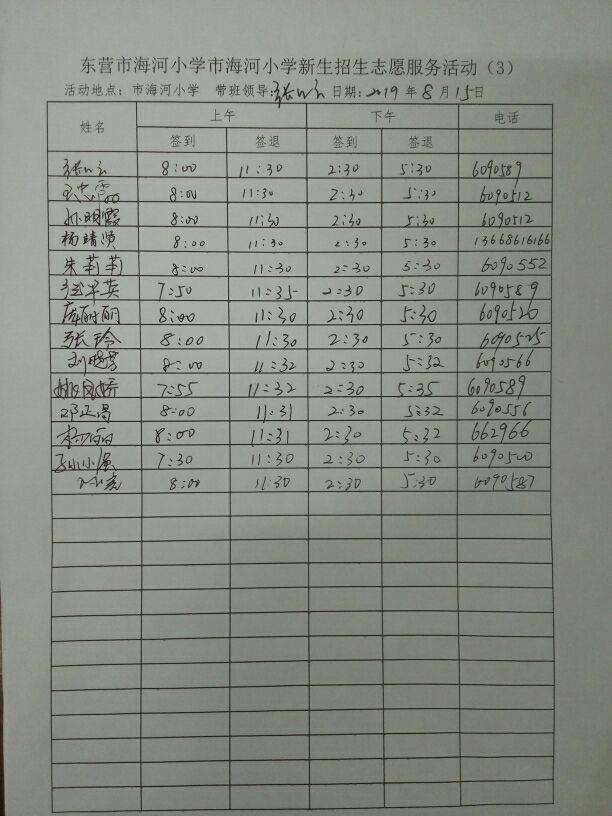 东营市海河小学市海河小学新生招生志愿服务活动（3）
活动地点：市海河小学 带班领导： 日期：2019年8月15日
姓名 上午 下午 电话
签到 签退 签到 签退
8:00 11:30 2:30 5:30 6090589
8:00 11:30 2:30 5:30 6090512
孙明霞 8:00 11:30 2:30 5:30 6090512
杨靖滨 8:00 11:30 2:30 5:30 13668616166
朱莉莉 8:00 11:30 2:30 5:30 6090552
7:50 11:35 2:30 5:30 6090589
唐丽丽 8:00 11:30 2:30 5:30 6090520
张玲 8:00 11:30 2:30 5:30 6090525
刘晓芳 8:00 11:32 2:30 5:32 6090566
7:55 11:32 2:30 5:35 6090589
邓正昌 8:00 11:31 2:30 5:32 6090556
8:00 11:31 2:30 5:32 662966
孙小滨 7:30 11:30 2:30 5:30 6090520
8:00 11:30 2:30 5:30 6090587